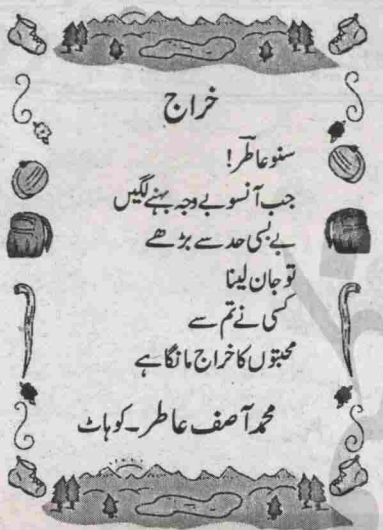 خراج
سنو عاطر!
جب آنسو بے وجہ بہنے لگیں
بے بسی حد سے بڑھے
تو جان لینا
کسی نے تم سے
محبتوں کا خراج مانگا ہے
محمد آصف عاطر۔ کوہاٹ